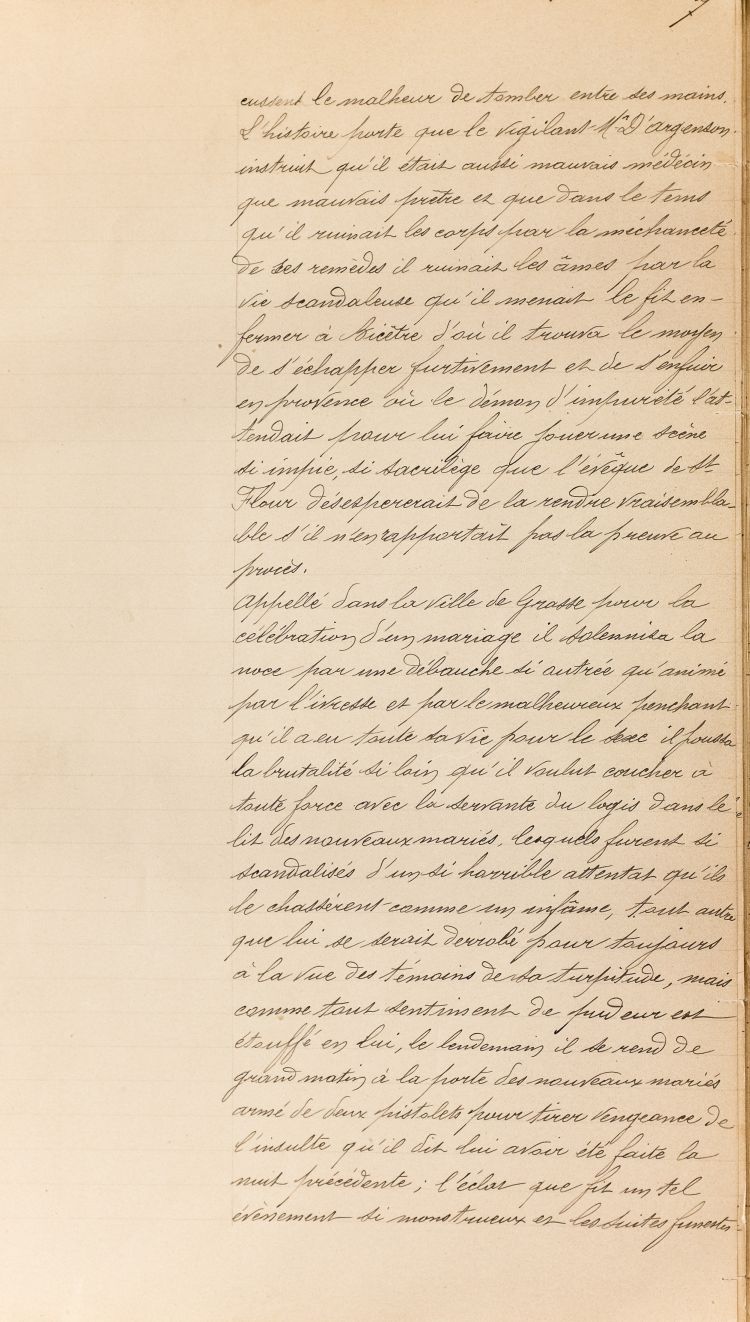 7
eussent le malheur de tomber entre ses mains.
L'histoire porte que le vigilant Mr D'argenson
instruit qu'il était aussi mauvais médécin
que mauvais prêtre et que dans le tems
qu'il ruinait les corps par la méchanceté
de ses remèdes il ruinait les âmes par la
vie scandaleuse qu'il menait le fit en-
fermer à Bicêtre d'où il trouva le moyen
de s'échapper furtivement et de s'enfuir
en provence où le démon d'impureté l'at-
tendait pour lui faire jouer une scène
si impie, si sacrilège que l'évêque de St
Flour désespererait de la rendre vraisembla-
ble s'il n'en rapportait pas la preuve au
procès.
Appellé dans la ville de Grasse pour la
célébration d'un mariage il solennisa la
noce par une débauche si outrée qu'animé
par l'ivresse et par le malheureux penchant
qu'il a eu toute sa vie pour le sexe il poussa
la brutalité si loin qu'il voulut coucher à
toute force avec la servante du logis dans le
lit des nouveaux mariés, lesquels furent si
scandalisés d'un si horrible attentat qu'ils
le chassèrent comme un infâme, tout autre
que lui se serait derrobé pour toujours
à la vue des témoins de sa turpitude, mais
comme tout sentiment de pudeur est
étouffé en lui, le lendemain il se rend de
grand matin à la porte des nouveaux mariés
armé de deux pistolets pour tirer vengeance de
l'insulte qu'il dit lui avoir été faite la
nuit précédente ; l'éclat que fit un tel
évènement si monstrueux et les suites funestes